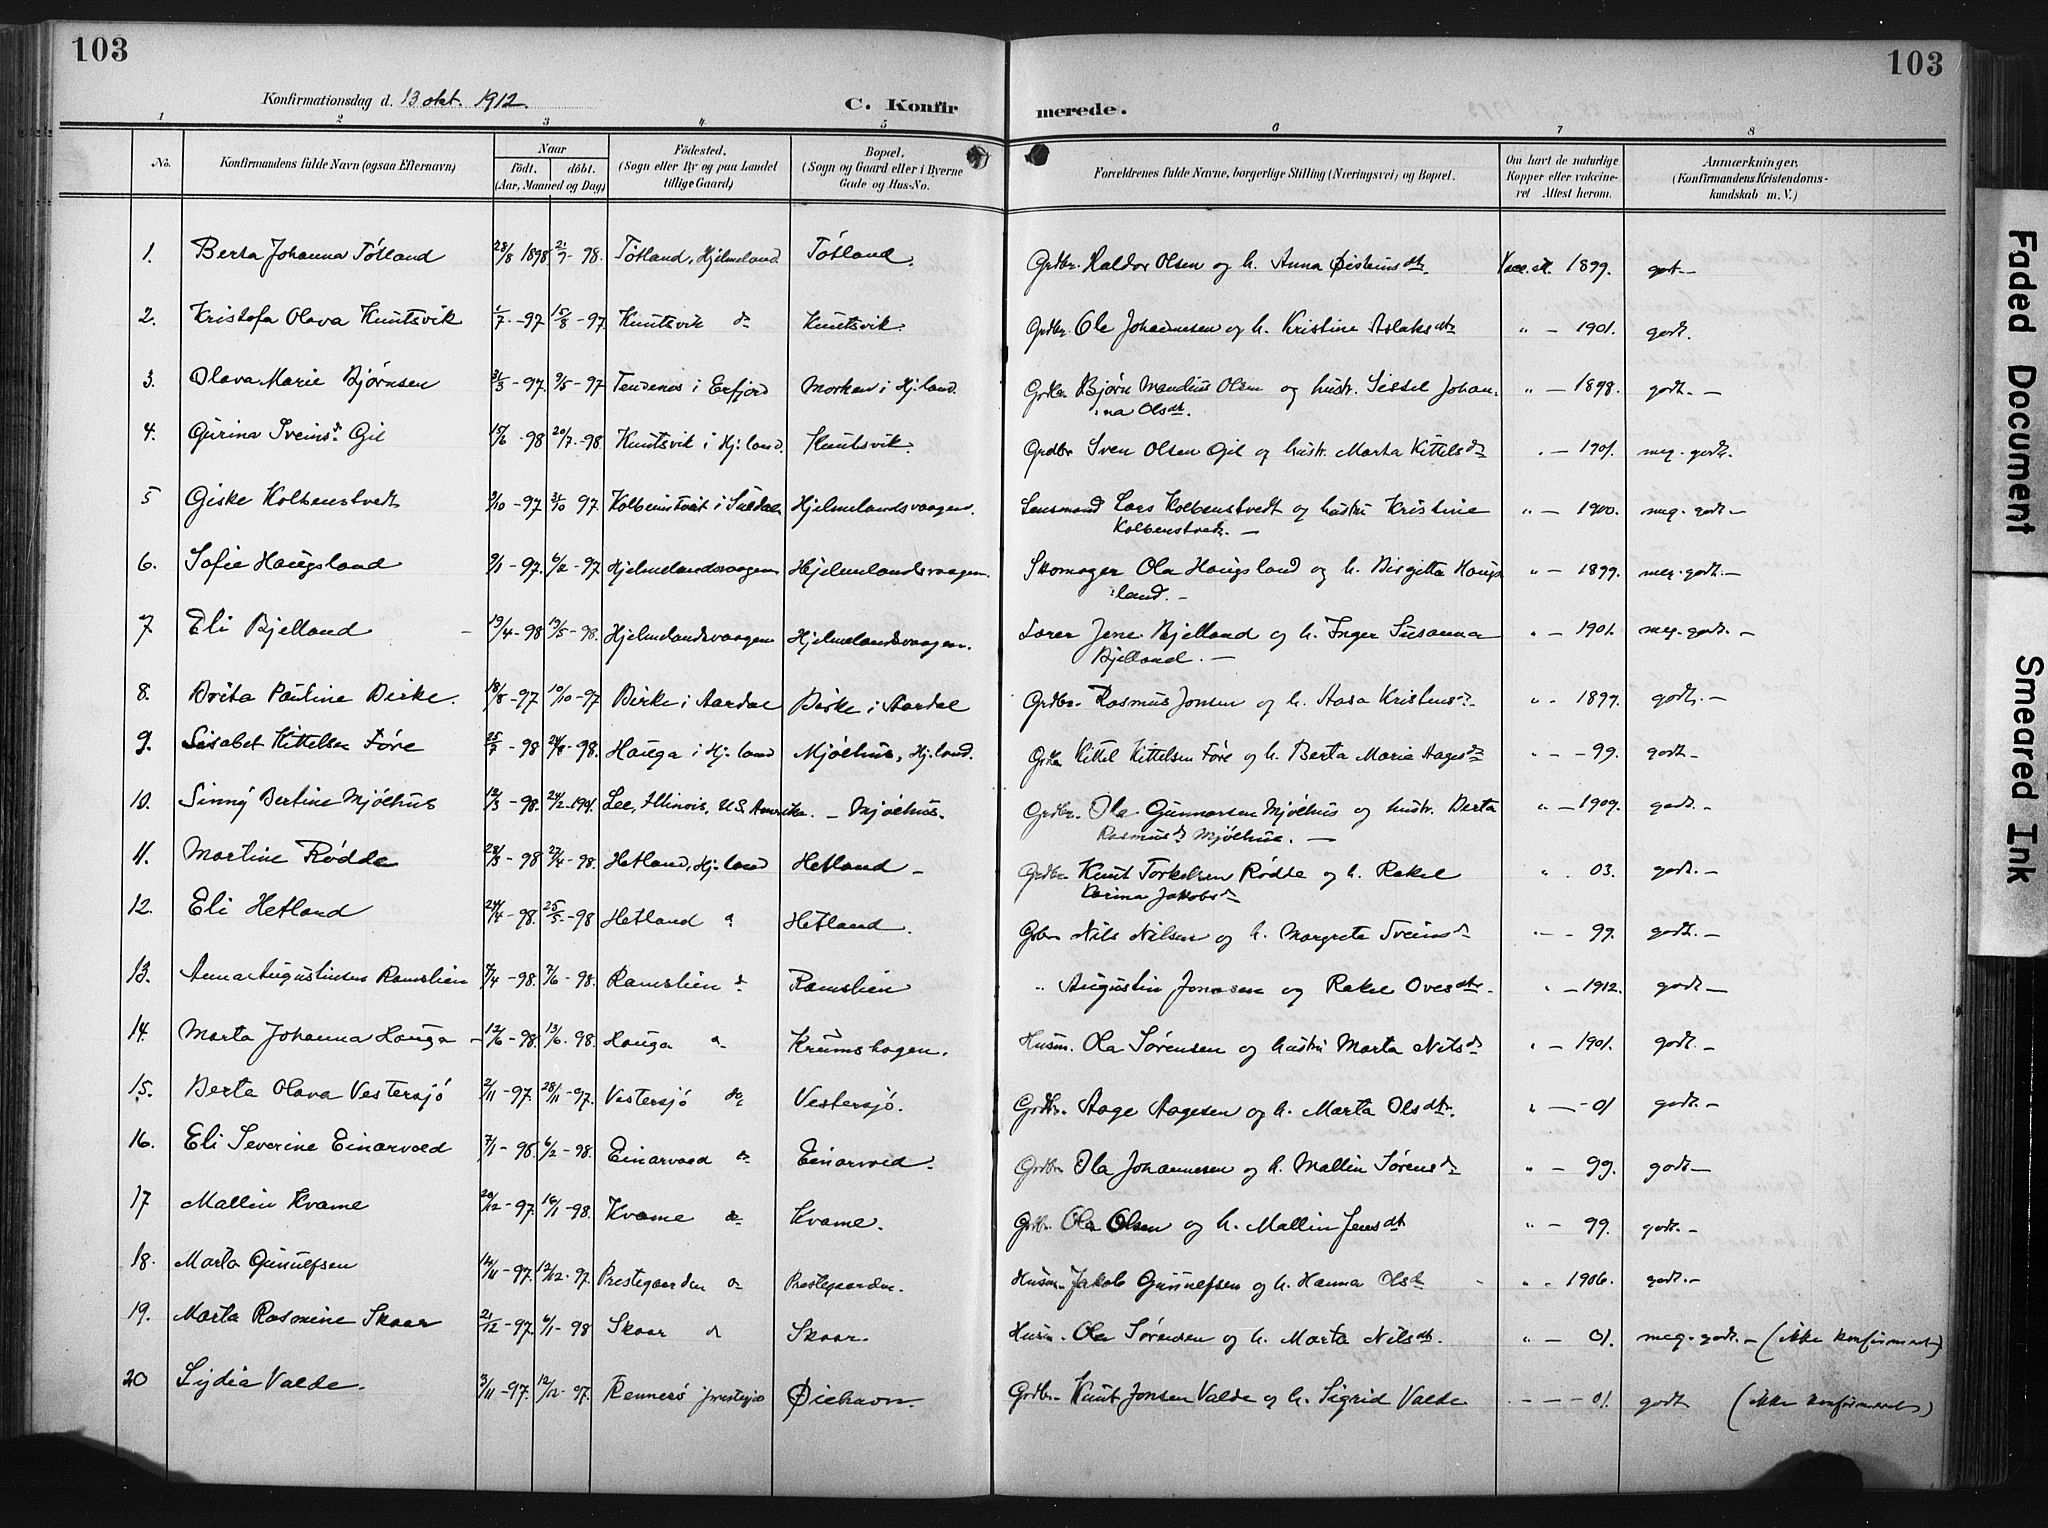 103
103
Konfirmationsdag d. 13 okt. 1912.
C. Konfir merede.
1 2 3 4 5 6 7 8
No. Konfirmandens fulde Navn (ogsaa Efternavn) Naar født. døbt. (Aar, Maaned og Dag) Fødested. (Sogn eller By og paa Landet tillige Gaard) Bopæl. (Sogn og Gaard eller i Byerne Gade og Hus-No. Forældrenes fulde Navne, borgerlige Stilling (Næringsvei) og Bopæl. Om havt de naturlige Kopper eller vaccineret Attest herom. Anmærkninger. (Konfirmandens Kristendomskundskab m. V.)
1. Berta Johanna Tøtland 28/8 1898 21/9 - 98. Tøtland, Hjelmeland. Tøtland. Grdbr. Haldor Olsen og h. Anna Øisteinsdtr. Vacc. at. 1899. godt -
2. Kristofa Olava Knutsvik 1/7 - 97 15/8 - 97 Knutsvik do Knutsvik. Grdbr. Ole Johannesen og h. Kristine Aslaksdtr " - 1901. godt.
3. Olava Marie Bjørnsen 31/3 - 97. 9/5 - 97 Tendenes i Erfjord Morken i Hj.land. Grdbr. Bjørn Mandius Olsen og hustr. Sissel Johan-
na Olsdtr. " - 1898. godt. -
4. Gurina Sveinsd. Gil 15/6 - 98 20/7 - 98 Knutsvik i Hj.land. Knutsvik. Grdbr Sven Olsen Gil og hustr. Marta Kittelsdtr " - 1901. meg. godt.
5 Giske Kolbenstvedt 9/10 - 97 31/10 97. Kolbeinstveit i Suldal Hjelmelandsvaagen. Lensmand Lars Kolbenstvedt og hustru Kristine
Kolbenstvedt. - " - 1900. meg. godt. -
6. Sofie Haugsland 9/1 - 97. 6/2 - 97. Hjelmelandsvaagen Hjelmelandsvaagen. Skomager Ola Haugsland og h. Birgitta Haugs
land. - " - 1899. meg. godt. -
7. Eli Bjelland 19/4 - 98 19/5 - 98. Hjelmelandsvaagen Hjelmelandsvaagen. Lærer Jens Bjelland og h. Inger Susanna
Bjelland. - " - 1901. meg. godt. -
8. Brita Pauline Birke. 18/8 - 97 10/10 - 97 Birke i Aardal Birke i Aardal Grdbr. Rasmus Jonsen og h. Aasa Kristensd. " - 1899. godt. -
9. Lisabet Kittelsen Føre 25/7 - 98 24/8 - 98. Hauga i Hj.land Mjølhus, Hj.land. Grdbr Kittel Kittelsen Føre og h. Berta Marie Aagesdtr " - - 99. godt -
10. Sinny Bertine Mjølhus 12/3 - 98. 24/2 - 1901. Lee, Illinois, U.S. Amerika. - Mjølhus. Grdbr. Ola Gunnarsen Mjølhus og hustr. Berta
Rasmusd. Mjølhus. - " - 1909. godt. -
11. Martine Rødde 28/3 - 98 27/4 - 98. Hetland, Hj.land Hetland - Grdbr. Knut Torkelsen Rødde og h. Rakel
Karina Jakobsd. " - 03. godt. -
12. Eli Hetland 24/4 - 98. 25/5 - 98 Hetland do Hetland. Gdbr Nils Nilsen og h. Margreta Sveinsd. " - 99. godt. -
13. Anna Augustinsen Ramslien 7/4 - 98. 7/6 - 98. Ramslien do Ramslien " Augustin Jonasen og Rakel Ovesdtr. " - 1912. godt -
14. Marta Johanna Hauga - 12/6 - 98. 13/6 - 98. Hauga do Krumshagen. Husm. Ola Sørensen og hustru Marta Nilsd. " - 1901. godt. -
15. Berta Olava Vestersjø 2/11 - 97. 28/11 - 97. Vestersjø do Vestersjø. Grdbr. Aage Aagesen og h. Marta Olsdtr. " - - 01 godt. -
16. Eli Severine Einarvold 7/1 - 98. 6/2 - 98. Einarvold do Einarvold. Grdbr Ola Johannesen og h. Mallin Sørensd. " - 99. godt -
17 Mallin Kvame 20/12 - 97. 16/1 - 98. Kvame do Kvame. Grdbr. Ola Olsen og h. Mallin Jensdtr " - 99. godt. -
18. Marta Gunnulfsen 14/11 - 97. 12/12 - 97. Prestegaarden do Prestegaarden. Husm. Jakob Gunnulfsen og h. Hanna Olsd. " - 1906. godt. -
19. Marta Rasmine Skaar 21/12 - 97. 6/1 - 98 Skaar do Skaar. Husm. Ola Sørensen og h. Marta Nilsdtr. " - 01. meg. godt. - (ikke konfirmeret)
20 Lydia Valde. 3/11 - 97. 12/12 - 97. Rennesø prestegj. Øiehavn. Grdbr. Knut Jonsen Valde og h. Sigrid Valde " - - 01. godt (ikke konfirmeret)
Faded Document
Smeared Ink